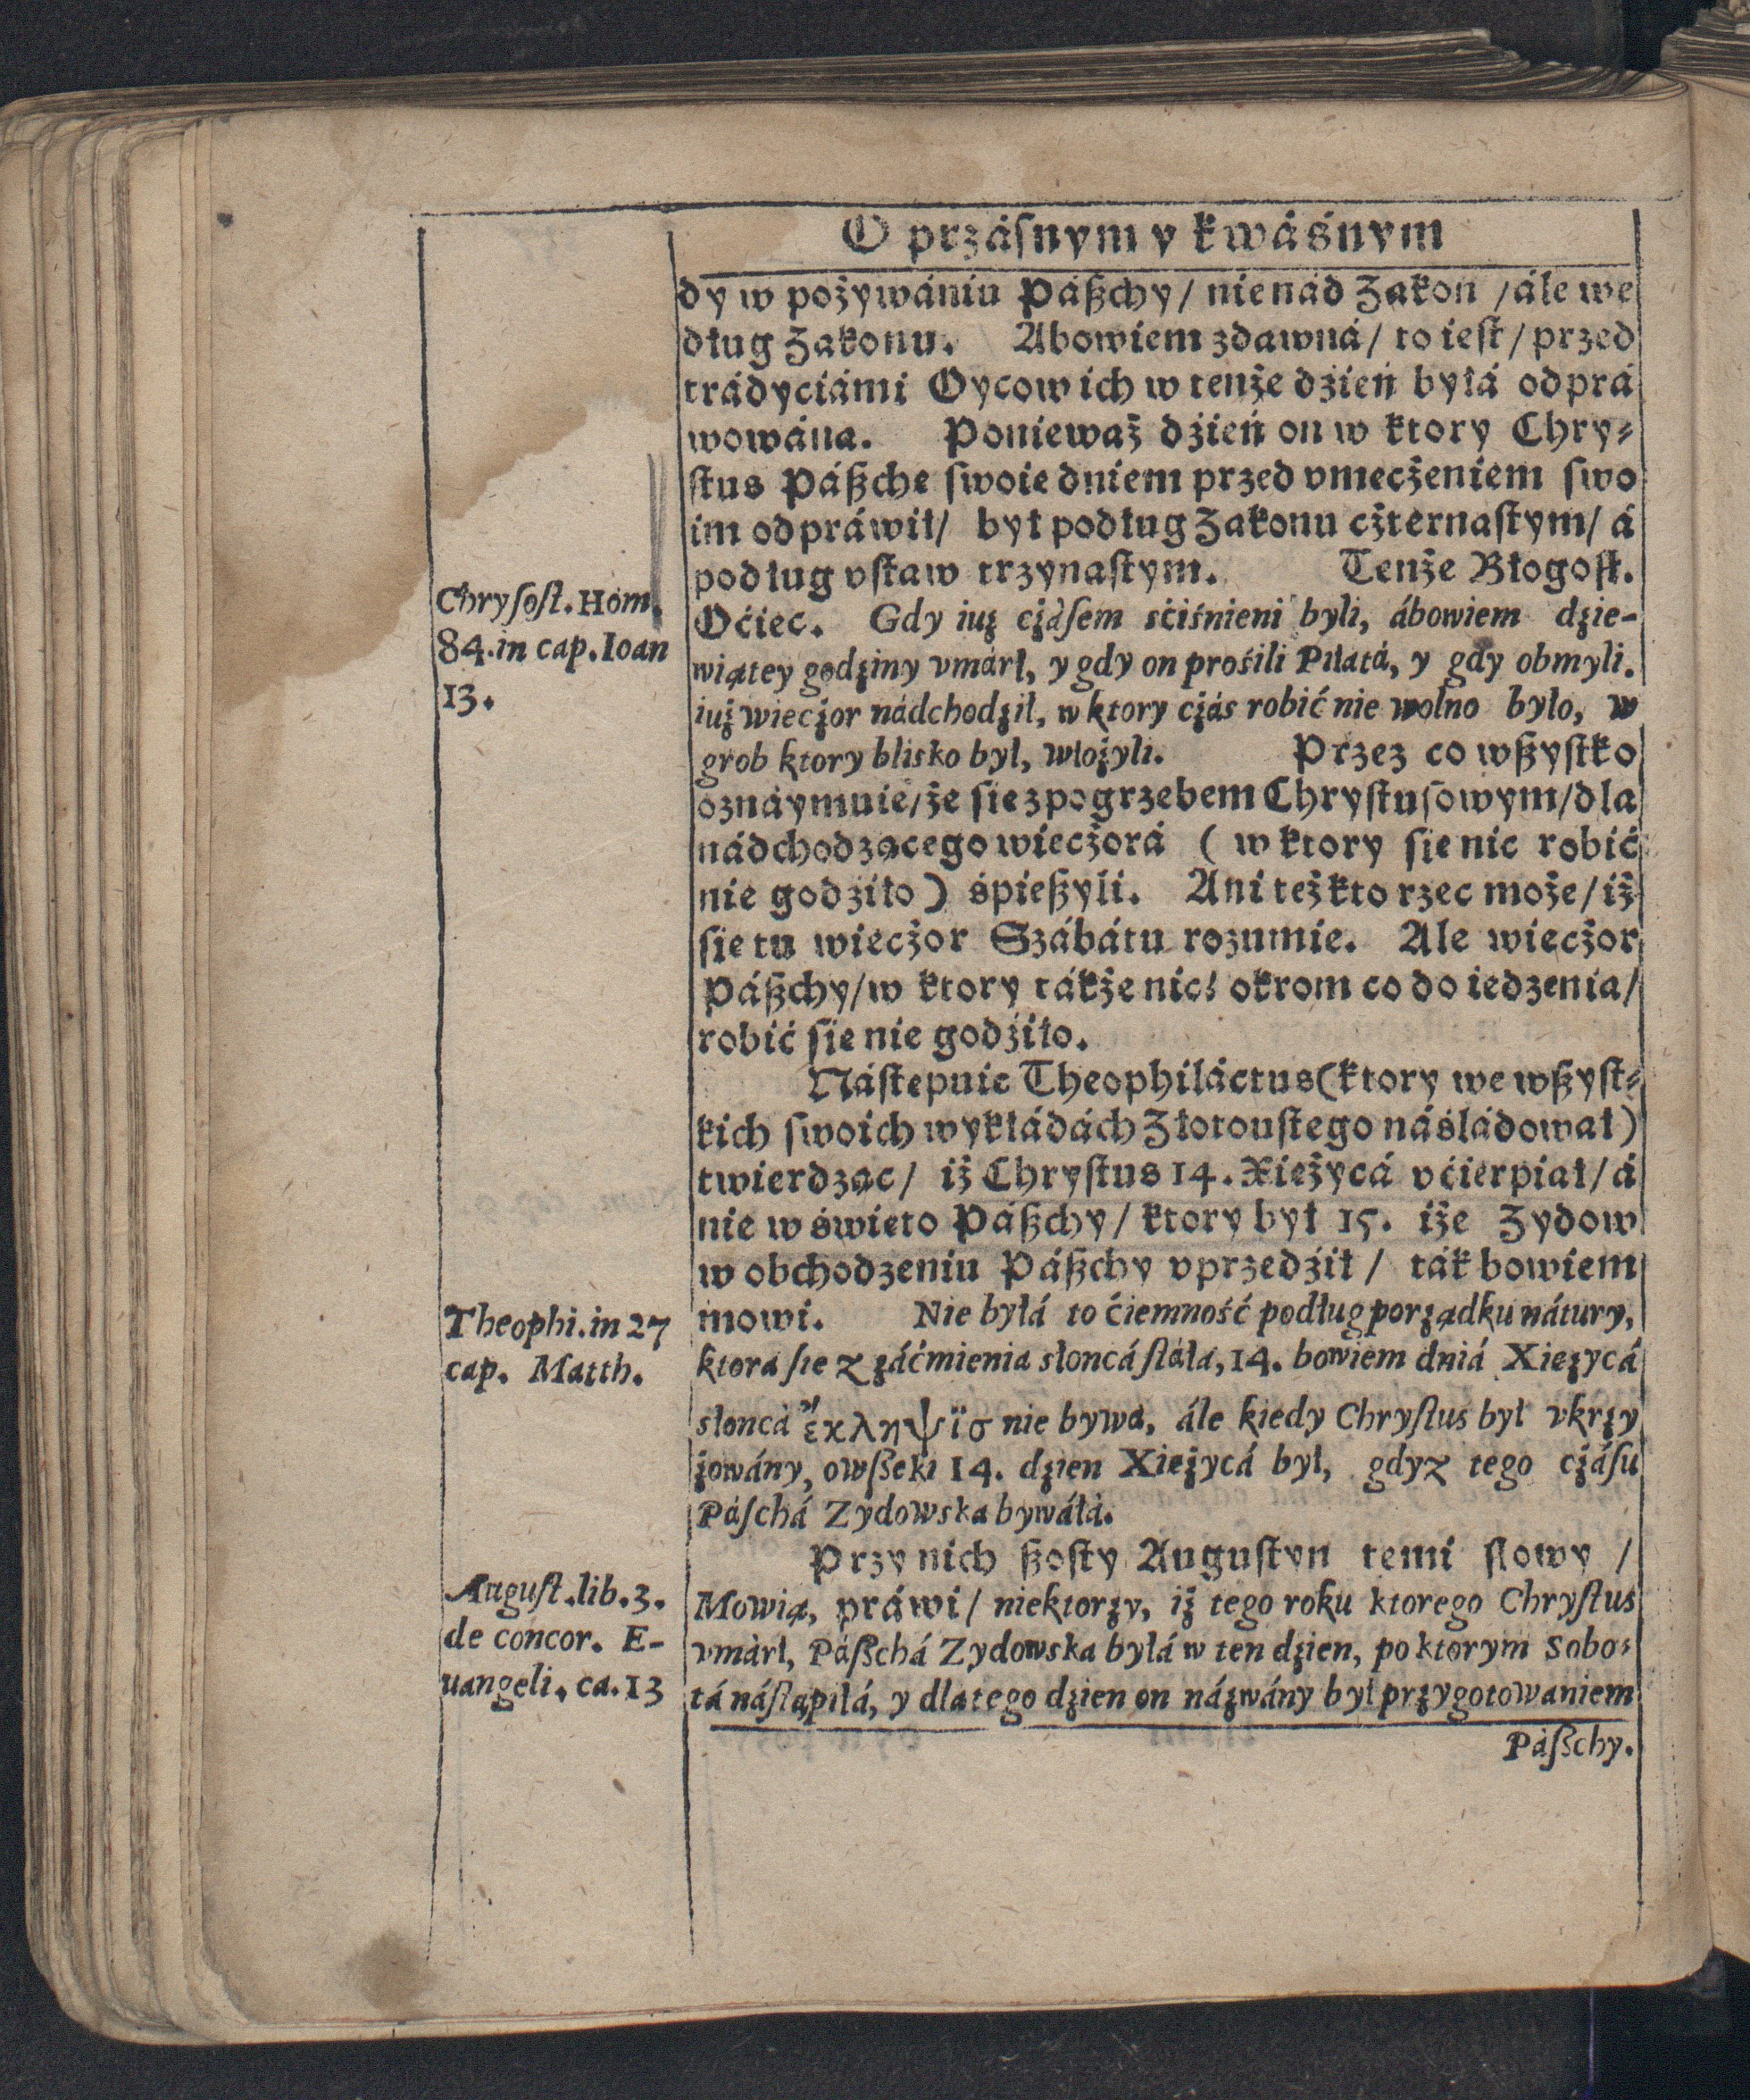 O przáſnym y kwáśnym
dy w pożywániu Páßchy / nie nád Zakon / ále we
dług Zakonu. Abowiem zdawná / to ieſt / przed
trádyciámi Oycow ich w tenże dżień byłá odprá
wowána. Ponieważ dżień on w ktory Chry⸗
ſtus Páßche ſwoie dniem przed vmecżeniem ſwo
im odpráwił / był podług Zakonu cżternaſtym / á
podług vſtaw trzynaſtym. Tenże Błogoſł.
Chryſoſt. Hom.
84. in cap. Ioan
13.
Oćiec. Gdy iuż cżáſem śćiśnieni byli, ábowiem dzie-
wiątey godziny vmárł, y gdy on prośili Piłatá, y gdy obmyli.
iuż wiecżor nádchodził, w ktory cżás robić nie wolno było, w
grob ktory blisko był, włożyli. Przez co wßyſtko
oznáymuie / że ſie z pogrzebem Chryſtuſowym / dla
nádchodzącego wiecżorá ( w ktory ſie nic robić
nie godźiło ) śpießyli. Ani też kto rzec może / iż
ſie tu wiecżor Szábátu rozumie. Ale wiecżor
Páßchy / w ktory tákże nic / okrom co do iedzenia /
robić ſie nie godźiło.
Náſtepuie Theophiláctus (ktory we wßyſt⸗
kich ſwoich wykłádách Złotouſtego náśládował)
twierdząc / iż Chryſtus 14. Xieżycá vćierpiał / á
nie w święto Páßchy / ktory był 15. iże Zydow
w obchodzeniu Páßchy vprzedźił / ták bowiem
Theophi. in 27
cap. Matth.
mowi. Nie byłá to ćiemność podług porządku nátury,
ktora ſie z záćmienia słoncá ſtáła, 14. bowiem dniá Xieżycá
słoncá ἔκληψϊσ nie bywa, ále kiedy Chryſtus był vkrzy
żowány, owſßeki 14. dzien Xieżycá był, gdyz tego cżáſu
Páſchá Zydowska bywáłá.
Przy nich ßoſty Auguſtyn temi ſlowy /
Auguſt. lib. 3.
de concor. E-
uangeli. ca. 13
Mowią, práwi / niektorzy, iż tego roku ktorego Chryſtus
vmárł, Páſßchá Zydowska byłá w ten dzien, po ktorym Sobo⸗
tá náſtąpiłá, y dlatego dzien on názwány był przygotowaniem
Páſßchy.